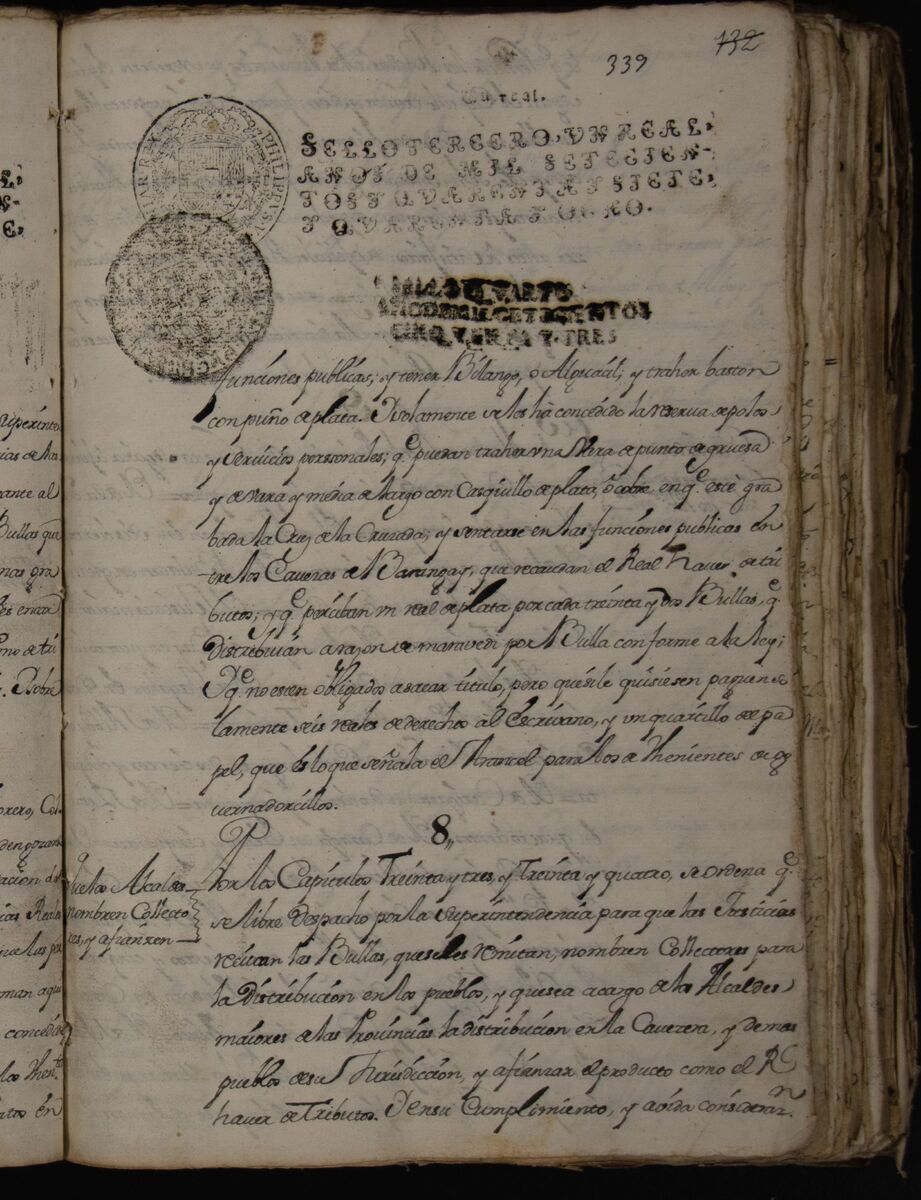 339
132
Un real.
SELLO TERCERO, VN REAL,
AÑOS DE MIL SETECIEN-
TOS Y QVARENTA Y SIETE,
Y QVARENTA Y OCHO.
PHILIPPUS
SELLO QVARTO
AÑO DE MIL SETECIENTOS
CINQVENTA Y TRES
funciones publicas; y tener Bilango, o Alguacil; y traher baston
con puño de plata. Y solamente se les há concedido la reserva de polos
y servicios perssonales; q.e puedan traher vna Vara de punto de gruesa
y de vara y media de largo con Casquillo de plata, ô cobre en q.e este gra
bada la Cruz de la Cruzada; y sentarse en las funciones publicas en
tre los Caveras de Barangay, que recaudan el Real Haver de tri
butos; y q.e perciban vn real de plata por cada treinta y dos Bullas, q.e
distribuian a razon de maravedi por Bulla conforme a la ley;
Y q.e no esten obligados a sacar titulo, pero que si le quisiesen paguen so
lamente seis reales de derechos al Escrivano, y vn quartillo de pa
pel, que es lo que señala el Arancel para los de Thenientes de go
vernadorcillos.
8,,
Por los Capitulos Treinta y tres, y Treinta y quatro, se ordena q.e
se libre Despacho por la Superintendencia para que las Justicias
recivan las Bullas, que se les remitan, nombren Collectores para
la Distribucion en los pueblos, y que sea a cargo de los Alcaldes
maiores de las Provincias la distribucion en la Cavezera, y demas
pueblos de su Jurisdiccion, y afianzar el producto como el R.l
haver de Tributos. Y en su Cumplimiento, y avida consideraz.n
Que los Alcaldes
nombren Collecto
res, y afianzen